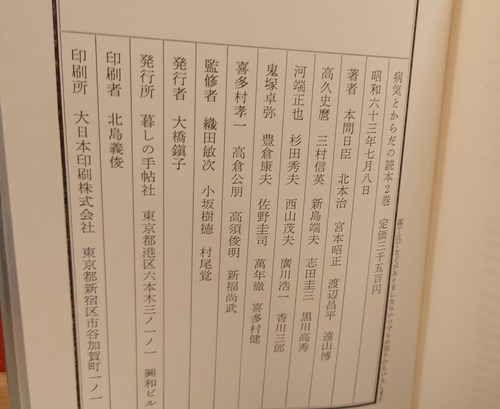 病気とからだの読本2巻
昭和六十三年七月八日 定価三千五百円
著者 本間日臣 北本治 宮本昭正 渡辺昌平 遠山博
高久史麿 三村信英 新島端夫 志田圭三 黒川高秀
河端正也 杉田秀夫 西山茂夫 廣川浩一 香川三郎
鬼塚卓弥 豊倉康夫 佐野圭司 萬年徹 喜多村健
喜多村孝一 高倉公朋 高須俊明 新福尚武
監修者 織田敏次 小坂樹徳 村尾覚
発行者 大橋鎭子
発行所 暮しの手帖社 東京都港区六本木三ノ一ノ一 興和ビル
印刷者 北島義俊
印刷所 大日本印刷株式会社 東京都新宿区市谷加賀町一ノ一